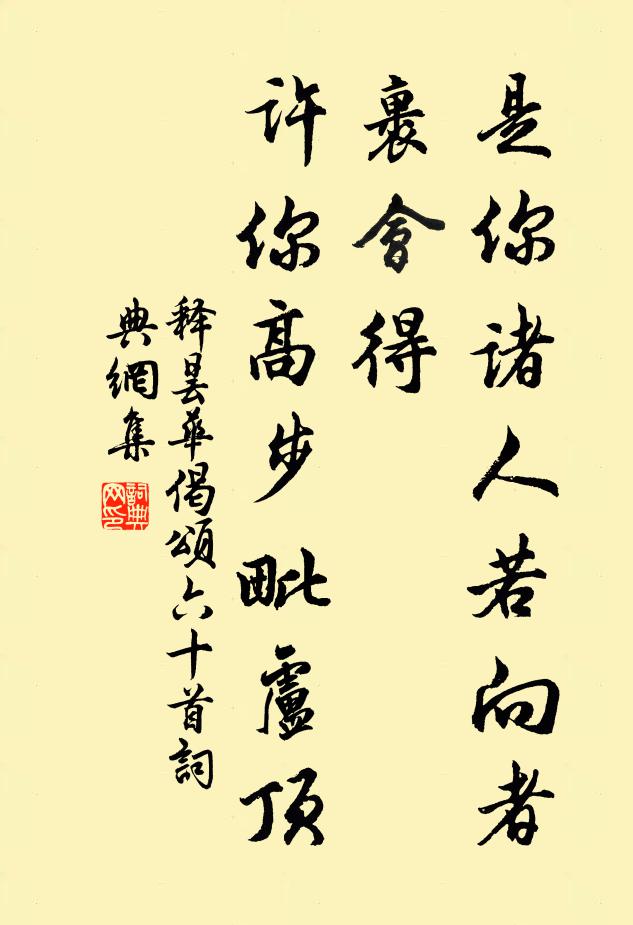 是你诸人若向者
裏會得
许你高步毗盧顶
释昙華偈頌六十首詞
典網集
詞典
网印